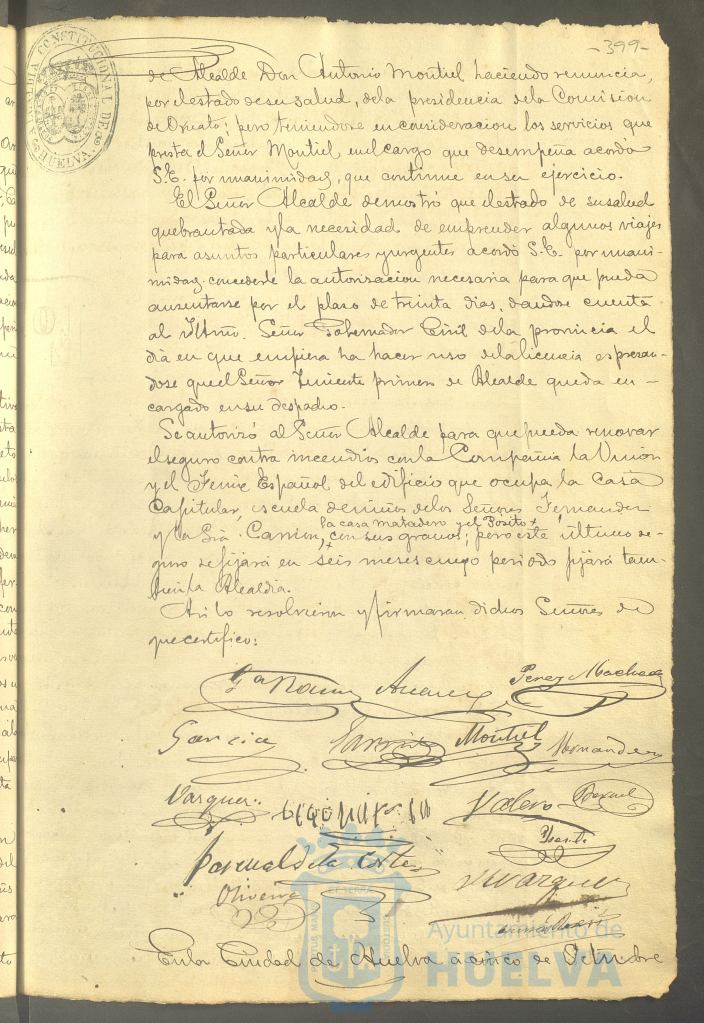 -399-
ALCALDIA CONSTITUCIONAL DE HUELVA
de Alcalde Don Antonio Montiel haciendo renuncia,
por el estado de su salud, de la presidencia de la Comision
de Ornato; pero teniendose en consideracion los servicios que
presta el Señor Montiel en el cargo que desempeña acordó
S.E. por unanimidad, que continue en su ejercicio.
El Señor Alcalde demostró que el estado de su salud
quebrantada y la necesidad de emprender algunos viajes
para asuntos particulares y urgentes acordó S.E. por unani-
midad concederle la autorizacion necesaria para que pueda
ausentarse por el plazo de treinta dias, dandose cuenta
al Iltmo. Señor Gobernador Civil de la provincia el
dia en que empiera ha hacer uso de la licencia espresan-
dose que el Señor Teniente primero de Alcalde queda en-
cargado en su despacho.
Se autorizó al Señor Alcalde para que pueda renovar
el seguro contra incendios con la Compañia la Union
y el Fenix Español del edificio que ocupa la casa
Capitular, escuela de niños de los Señores Fernandez
la casa matadero y el Posito +
y la Sra. Carrion, + con sus granos; pero este último se-
guro se fijará en seis meses cuyo periodo fijará tam-
bien la Alcaldia.
Asi lo resolvieron y firmaran dichos Señores de
que certifico:
Perez Machado
Garcia
Montiel
Hernandez
Vazquez
Valero
de la Corte
Oliveira
Vazquez
En la Ciudad de Huelva a cinco de Octubre
Ayuntamiento de
HUELVA